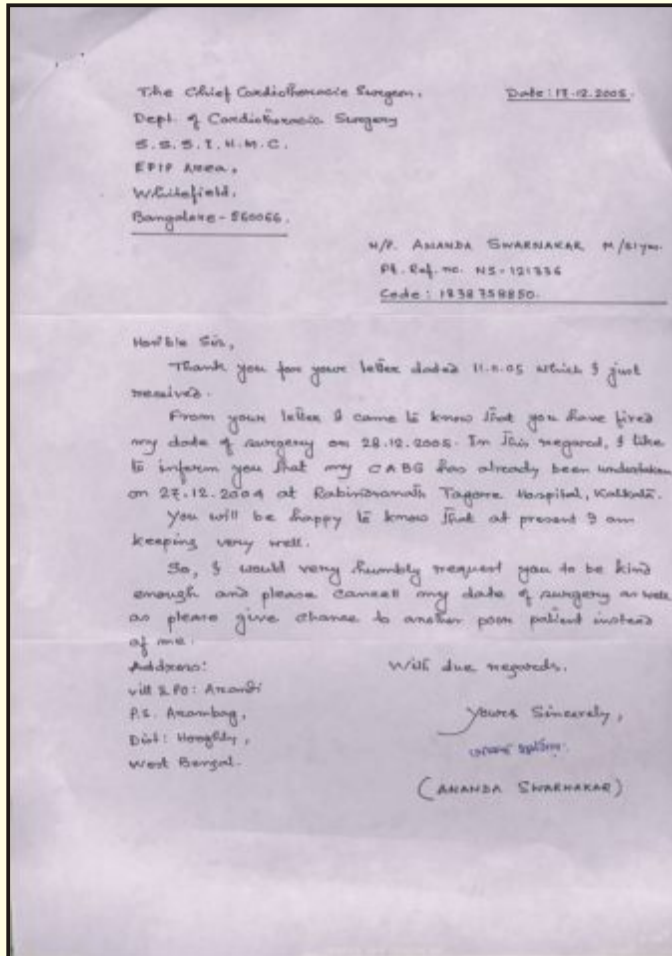 The Chief Cardiothoracic Surgeon,
Date: 17.12.2005.
Dept. of Cardiothoracic Surgery
S.S.S.I.H.M.C.
EPIP Area,
Whitefield,
Bangalore - 560066.
N/P. ANANDA SWARNAKAR M/61yrs.
Pt. Ref. no. NS-121336
Code: 1838758850.
Hon'ble Sir,
Thank you for your letter dated 11.11.05 which I just
received.
From your letter I came to know that you have fixed
my date of surgery on 28.12.2005. In this regard, I like
to inform you that my CABG has already been undertaken
on 27.12.2004 at Rabindranath Tagore Hospital, Kolkata.
You will be happy to know that at present I am
keeping very well.
So, I would very humbly request you to be kind
enough and please cancell my date of surgery as well
as please give chance to another poor patient instead
of me.
Address:
With due regards.
Vill & PO: Arandi
P.S. Arambag,
Yours Sincerely,
Dist: Hooghly,
West Bengal.
(ANANDA SWARNAKAR)